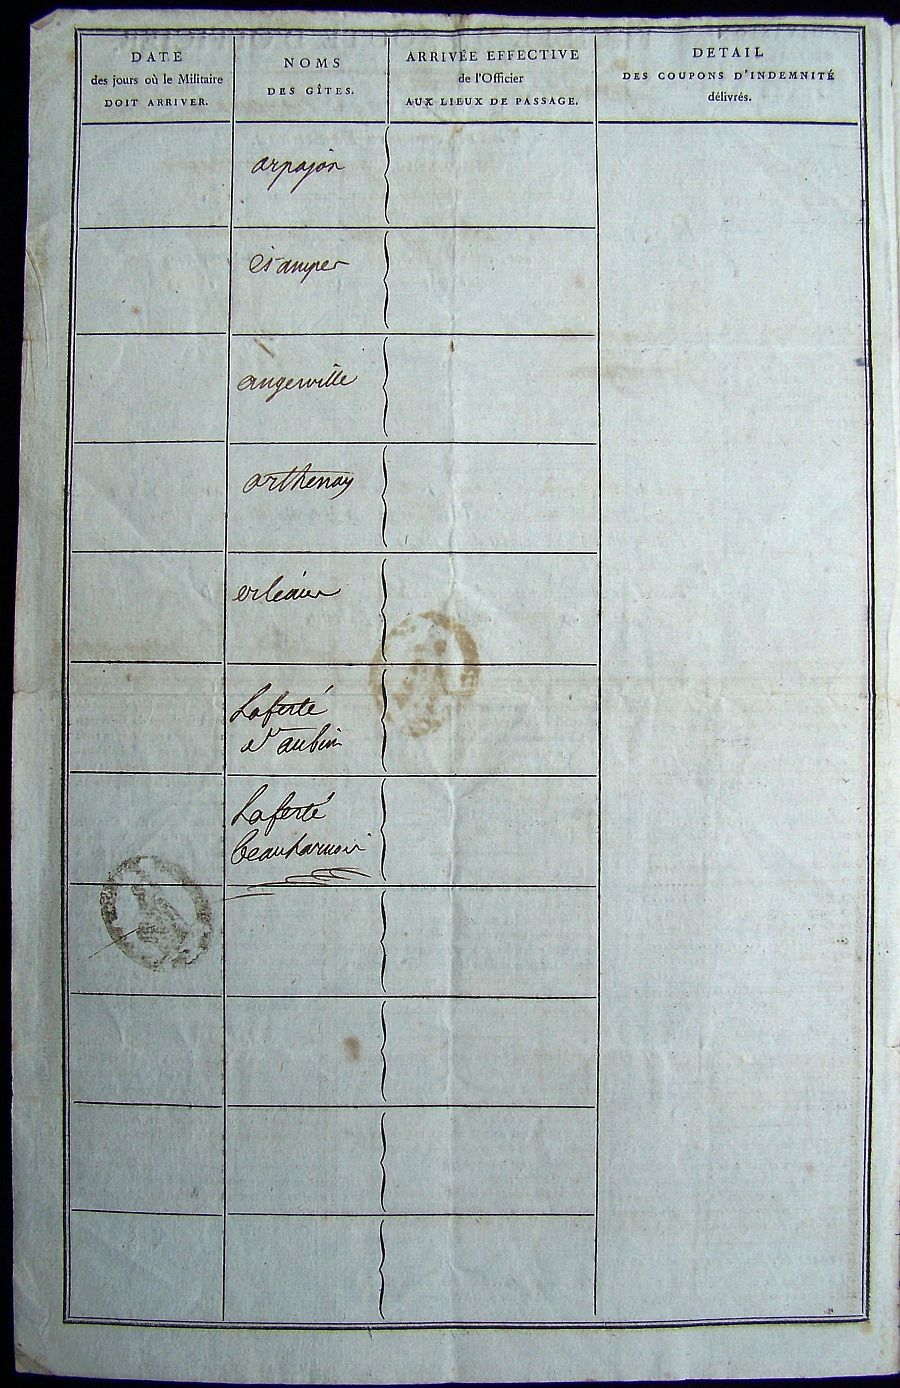 DATE
des jours où le Militaire
DOIT ARRIVER.
NOMS
DES GÎTES.
ARRIVÉE EFFECTIVE
de l'Officier
AUX LIEUX DE PASSAGE.
DETAIL
DES COUPONS D'INDEMNITÉ
délivrés.
arpajon
Etampes
angerville
arthenay
orléans
Laferté
d'aubin
Laferté
beauharnois